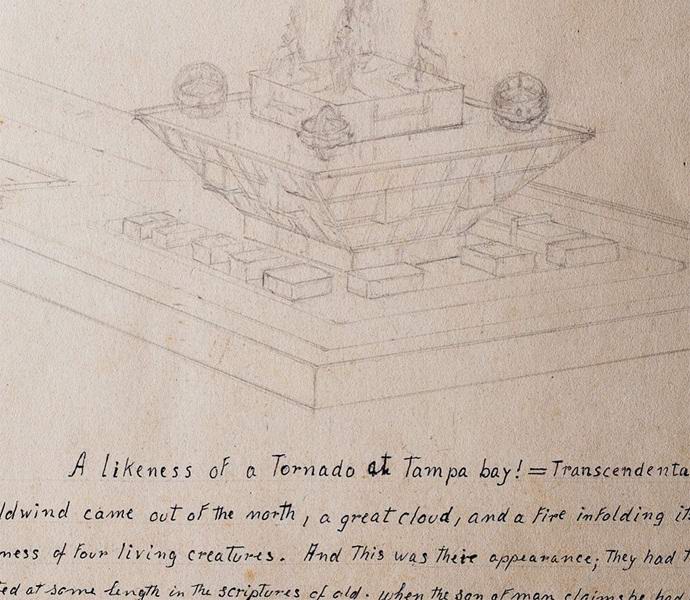 A likeness of a Tornado at Tampa bay! = Transcendenta
ldwind came out of the north, a great cloud, and a Fire infolding it
ness of Four living creatures. And This was their appearance; They had t
ed at some length in The scriptures of old. when the son of man claims he had